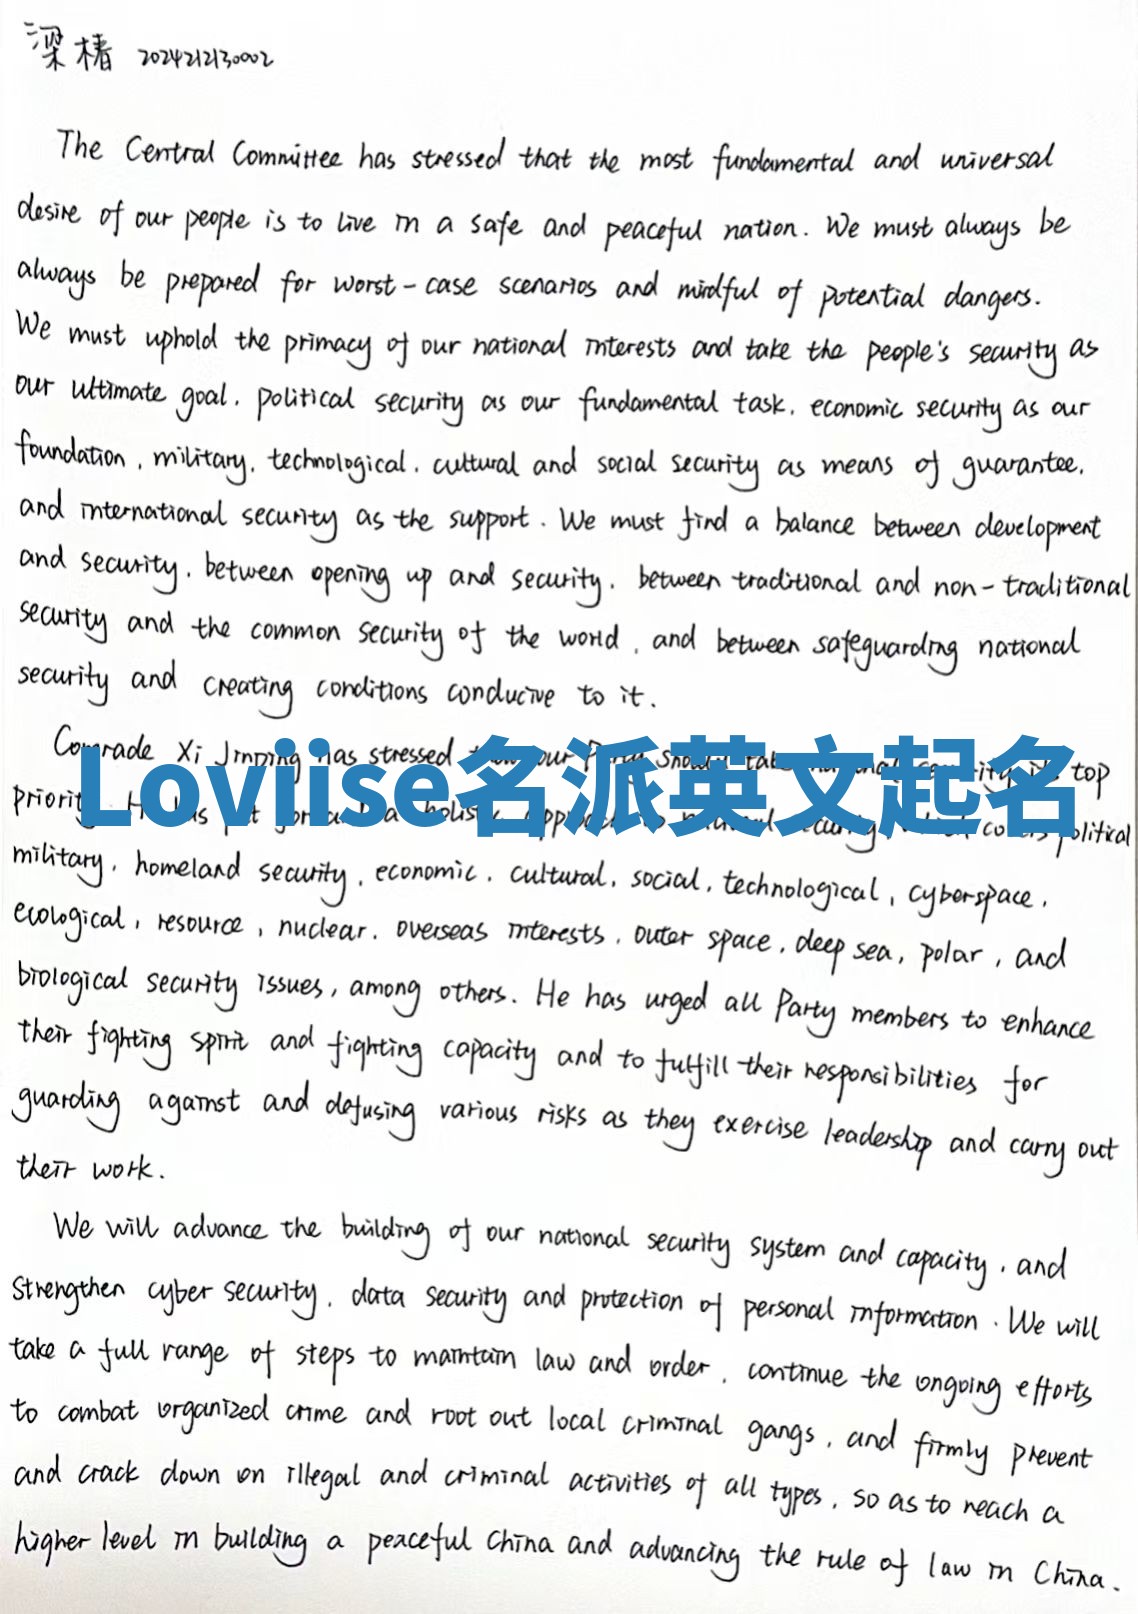 梁椿 2024212130002
The Central Committee has stressed that the most fundamental and universal
desire of our people is to live in a safe and peaceful nation. We must always be
always be prepared for worst-case scenarios and mindful of potential dangers.
We must uphold the primacy of our national interests and take the people's security as
our ultimate goal, political security as our fundamental task, economic security as our
foundation, military, technological, cultural and social security as means of guarantee,
and international security as the support. We must find a balance between development
and security, between opening up and security, between traditional and non-traditional
security and the common security of the world, and between safeguarding national
security and creating conditions conducive to it.
Comrade Xi Jinping has stressed our top
Loviise名派英文起名
political
military, homeland security, economic, cultural, social, technological, cyberspace,
ecological, resource, nuclear, overseas interests, outer space, deep sea, polar, and
biological security issues, among others. He has urged all Party members to enhance
their fighting spirit and fighting capacity and to fulfill their responsibilities for
guarding against and defusing various risks as they exercise leadership and carry out
their work.
We will advance the building of our national security system and capacity, and
strengthen cyber security, data security and protection of personal information. We will
take a full range of steps to maintain law and order, continue the ongoing efforts
to combat organized crime and root out local criminal gangs, and firmly prevent
and crack down on illegal and criminal activities of all types, so as to reach a
higher level in building a peaceful China and advancing the rule of law in China.